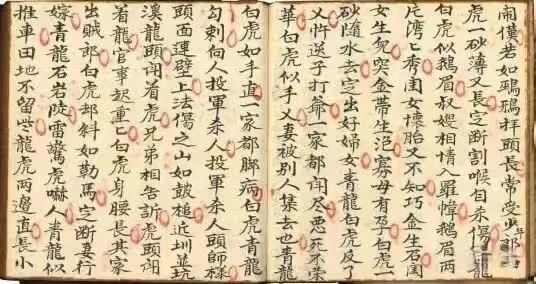 若如鵶鵶拜頭長常受少年
虎一砂薄又長定断割喉自杀傷龍
白虎似鵝眉叔嫂相情入羅幃鵝眉兩
片湾匕秀閨女懷胎又不知巧金生石
女生突金帶生絕寡母有孕白虎一
砂隨水去定出好婦女青龍白虎反了
又忤送子打爺一家都闹尽悪死不荣
華白虎似手又妻被別人集去也青龍
白虎如手直一家都脚病白虎青龍
勾刺向人投軍杀人投軍杀人頭師樣
頭面連壁上法傷之山如鼓槌近圳並坑
溪龍頭闹着虎兄弟相告訴虎頭闹
着龍官事起重匕白虎身腰長其家
出賊郎白虎却斜如勒馬定断妻行
嫁青龍石岩陡雷驚虎嚇人青龍似
推車田地不留些龍虎兩邊直長小